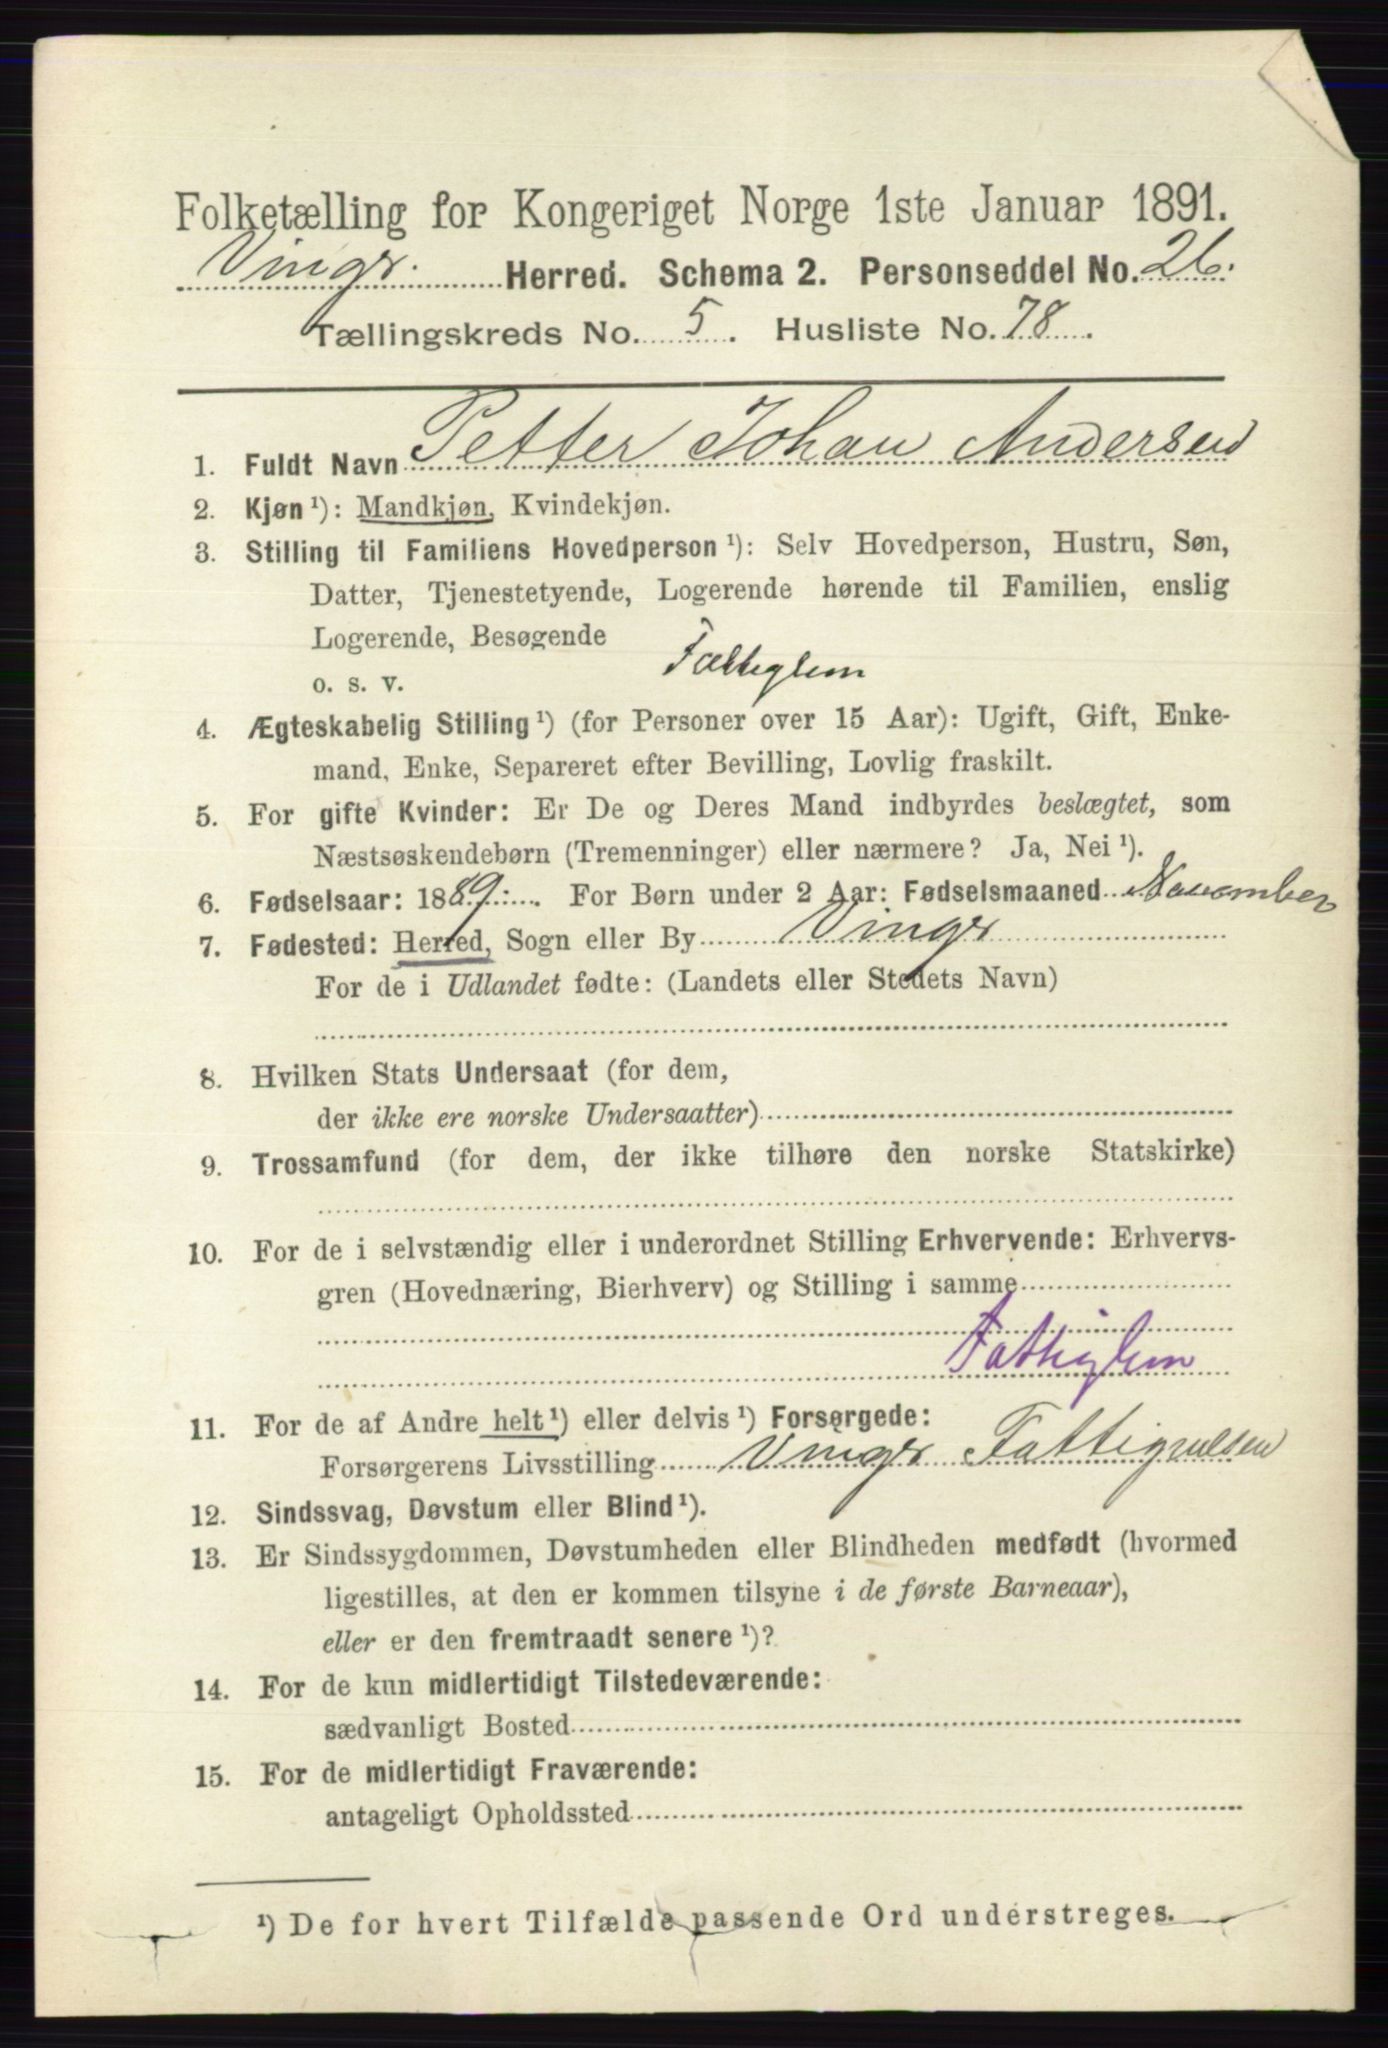 Folketælling for Kongeriget Norge 1ste Januar 1891.
Vinger Herred. Schema 2. Personseddel No. 26.
Tællingskreds No. 5. Husliste No. 78.
1. Fuldt Navn Petter Johan Andersen
2. Kjøn ¹): Mandkjøn, Kvindekjøn.
3. Stilling til Familiens Hovedperson ¹): Selv Hovedperson, Hustru, Søn,
Datter, Tjenestetyende, Logerende hørende til Familien, enslig
Logerende, Besøgende
o. s. v. Fattiglem
4. Ægteskabelig Stilling ¹) (for Personer over 15 Aar): Ugift, Gift, Enke-
mand, Enke, Separeret efter Bevilling, Lovlig fraskilt.
5. For gifte Kvinder: Er De og Deres Mand indbyrdes beslægtet, som
Næstsøskendebørn (Tremenninger) eller nærmere? Ja, Nei ¹).
6. Fødselsaar: 1889. For Børn under 2 Aar: Fødselsmaaned November
7. Fødested: Herred, Sogn eller By Vinger
For de i Udlandet fødte: (Landets eller Stedets Navn)
8. Hvilken Stats Undersaat (for dem,
der ikke ere norske Undersaatter)
9. Trossamfund (for dem, der ikke tilhøre den norske Statskirke)
10. For de i selvstændig eller i underordnet Stilling Erhvervende: Erhvervs-
gren (Hovednæring, Bierhverv) og Stilling i samme
Fattiglem
11. For de af Andre helt ¹) eller delvis ¹) Forsørgede:
Forsørgerens Livsstilling Vinger Fattigvæsen
12. Sindssvag, Døvstum eller Blind ¹).
13. Er Sindssygdommen, Døvstumheden eller Blindheden medfødt (hvormed
ligestilles, at den er kommen tilsyne i de første Barneaar),
eller er den fremtraadt senere ¹)?
14. For de kun midlertidigt Tilstedeværende:
sædvanligt Bosted
15. For de midlertidigt Fraværende:
antageligt Opholdssted
¹) De for hvert Tilfælde passende Ord understreges.